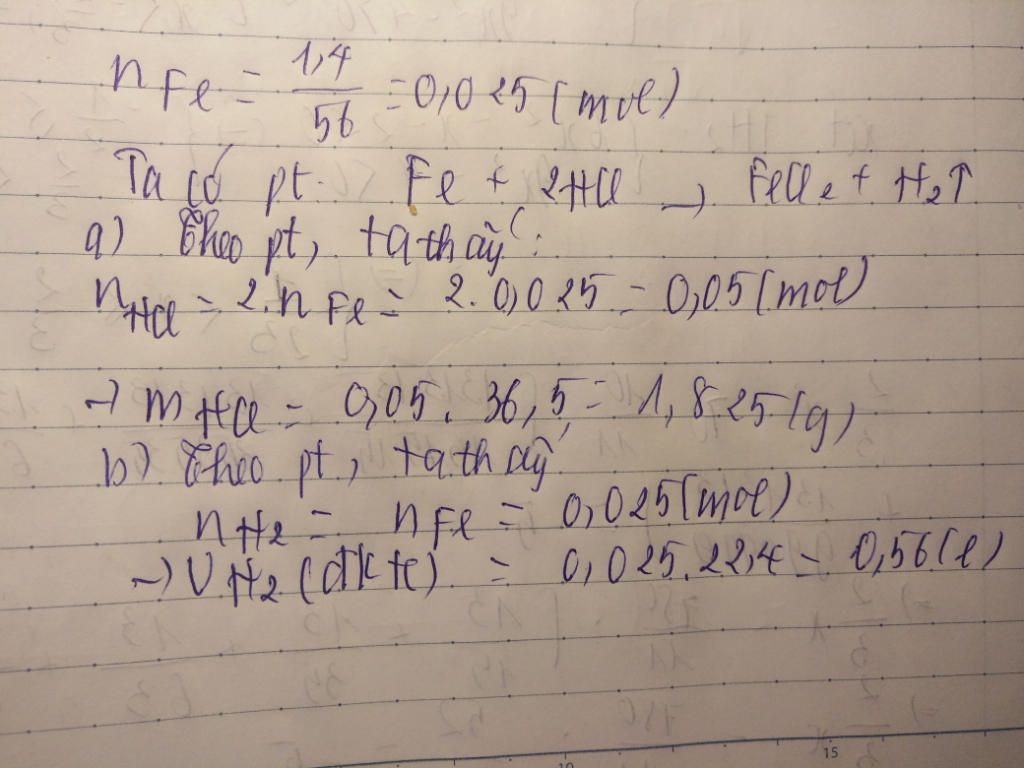 n Fe = 1,4/56 = 0,025 (mol)
Ta có pt: Fe + 2HCl → FeCl2 + H2↑
a) Theo pt, ta thấy:
nHCl = 2.nFe = 2.0,025 = 0,05 (mol)
→ mHCl = 0,05. 36,5 = 1,825 (g)
b) Theo pt, ta thấy
nH2 = nFe = 0,025 (mol)
→ VH2 (đktc) = 0,025.22,4 = 0,56 (l)
15